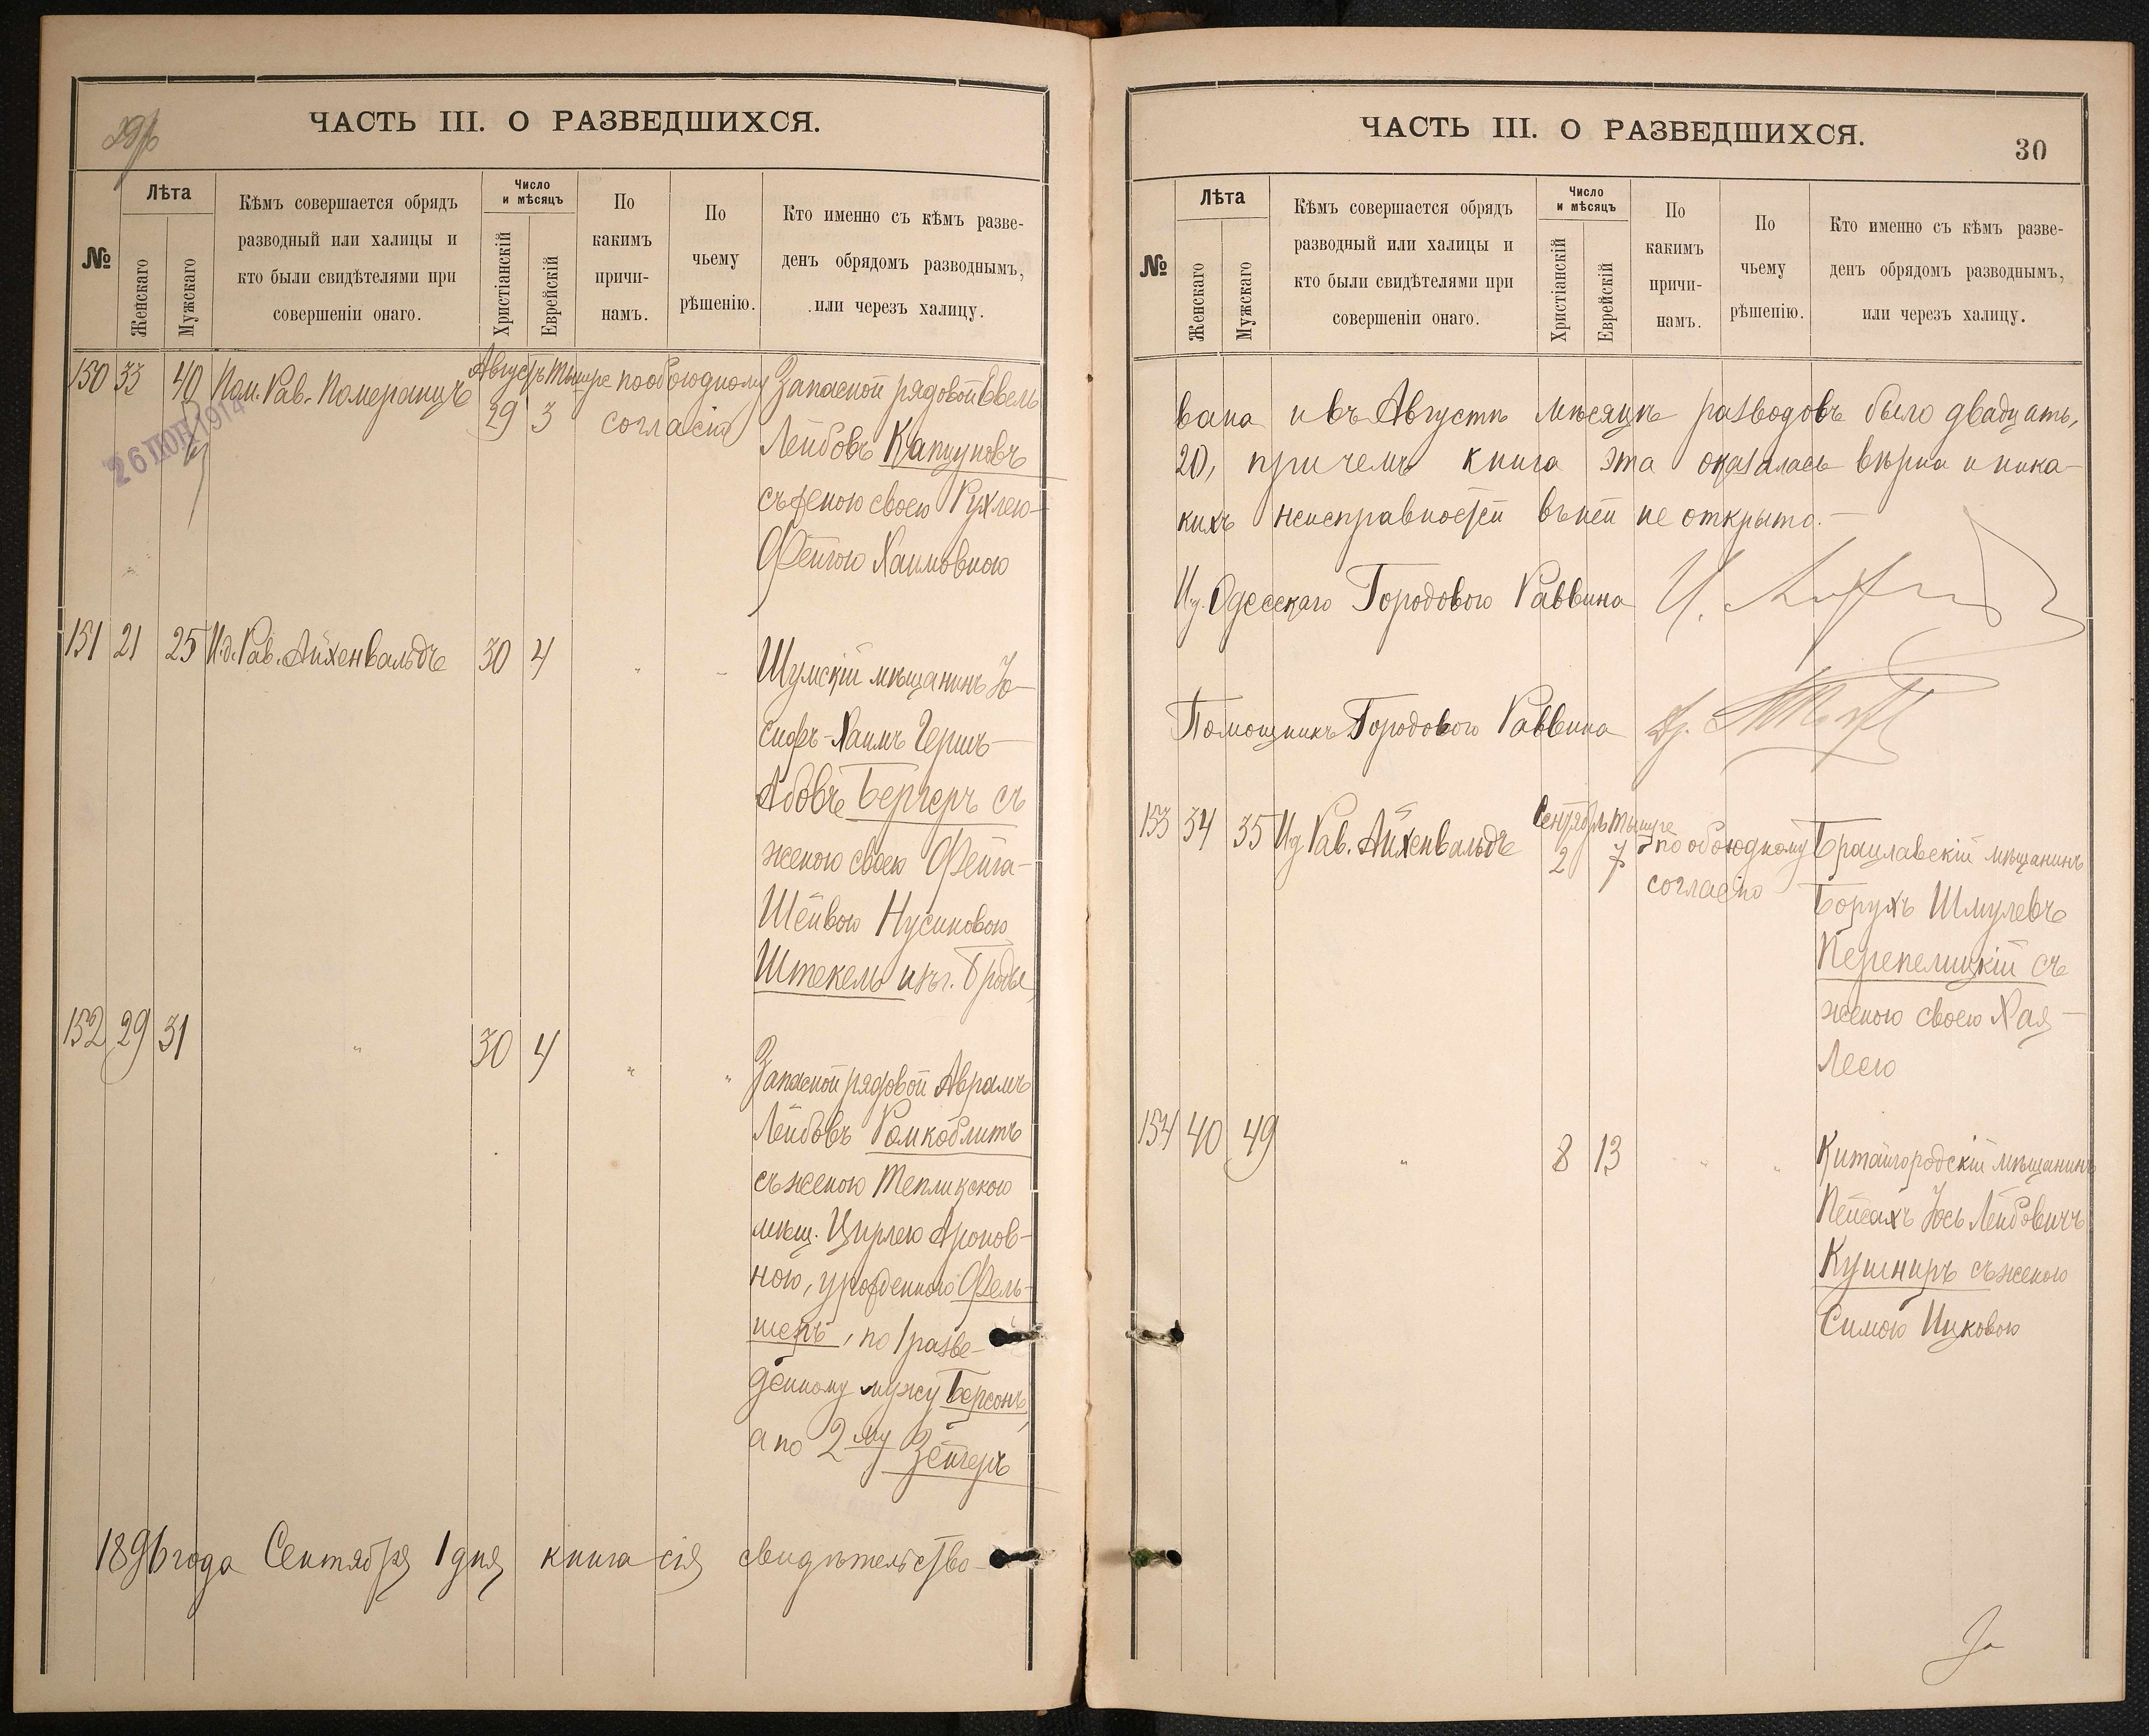 ЧАСТЬ III. О РАЗВЕДШИХСЯ.
№
Лѣта
Женскаго
Мужскаго
Кѣмъ совершается обрядъ
разводный или халицы и
кто были свидѣтелями при
совершеніи онаго.
Число
и мѣсяцъ
Христіанскій
Еврейскій
По
какимъ
причи-
намъ.
По
чьему
рѣшенію.
Кто именно съ кѣмъ разве-
денъ обрядомъ разводнымъ,
или через халицу.
150 33 40 Пом. Рав. Померанцъ Августъ Тышре по обоюдному Запасной рядовой
29 3 согласію
Лейбовъ Капцуновъ
съ женою своею Рухлею-
Фейгою Хаимовною
26 ІЮН 1914
151 21 25 И.д. Рав. Айхенвальдъ 30 4 " "
Шумскій мѣщанинъ Іо-
сифъ-Хаимъ Гершъ-
Абовъ Бергеръ съ
женою своею Фейга-
Шейвою Нусиновою
Штекель изъ г. Броды
152 29 31 " 30 4 " "
Запасной рядовой Аврамъ
Лейбовъ Ромкоблитъ
съ женою Тепликскою
мѣщ. Цирлею Ароновъ-
ною, урожденною Фель-
шеръ, по 1 разве-
денному мужу Берсонъ,
а по 2му Зейгеръ
1896 года Сентября 1 дня книга сія свидѣтельство-
ЧАСТЬ III. О РАЗВЕДШИХСЯ.
30
№
Лѣта
Женскаго
Мужскаго
Кѣмъ совершается обрядъ
разводный или халицы и
кто были свидѣтелями при
совершеніи онаго.
Число
и мѣсяцъ
Христіанскій
Еврейскій
По
какимъ
причи-
намъ.
По
чьему
рѣшенію.
Кто именно съ кѣмъ разве-
денъ обрядомъ разводнымъ,
или черезъ халицу.
вана и въ Августѣ мѣсяцѣ разводовъ было двадцать,
20, при чемъ книга эта оказалась вѣрна и ника-
кихъ неисправностей въ ней не открыто.-
И.д. Одесскаго Городового Раввина
Помощникъ Городового Раввина Др.
153 34 35 И.д. Рав. Айхенвальдъ Сентябрь Тышре
2 7 по обоюдному
согласію
Брацлавскій мѣщанинъ
Борухъ Шмулевъ
Перепелицкій съ
женою своею Хая-
Лею
154 40 49 " 8 13 " "
Китайгородскій мѣщанинъ
Пейсахъ Іось Лейбовичъ
Кушниръ съ женою
Симою Ицковою